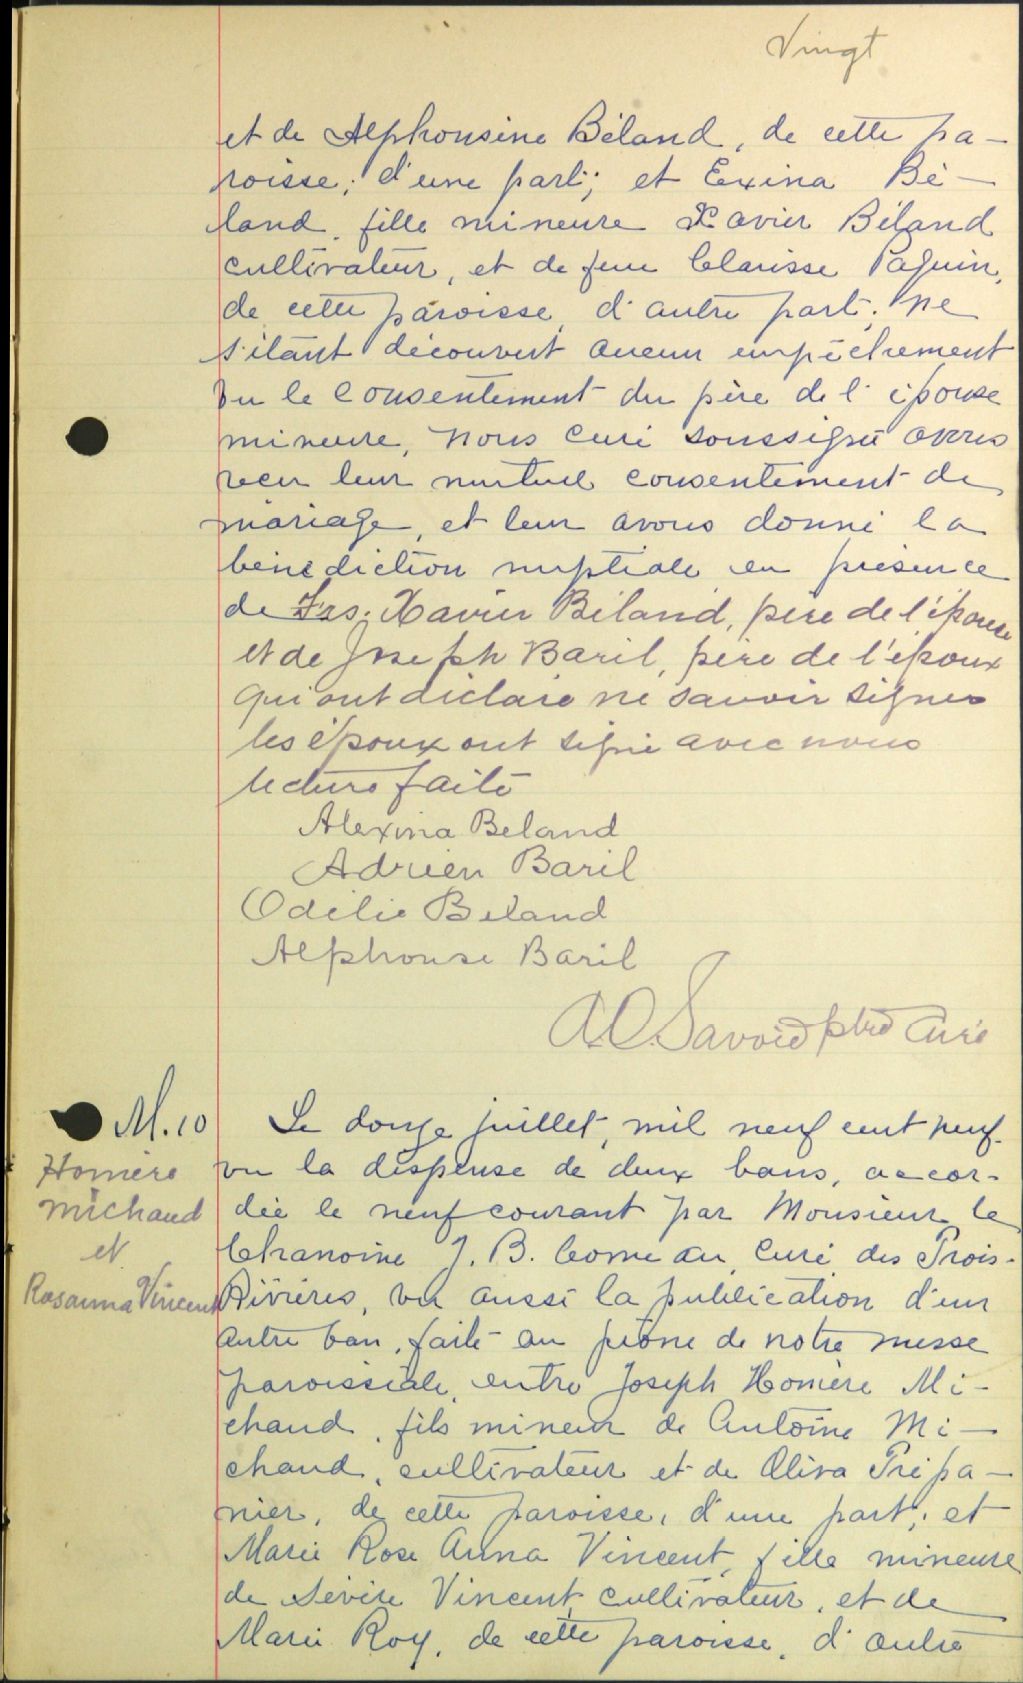 Vingt
et de Alphonsine Béland, de cette pa-
roisse; d'une part; et Exina Bé-
land, fille mineure Xavier Béland
cultivateur, et de feue Clarisse Paquin,
de cette paroisse, d'autre part; ne
s'étant découvert aucun empêchement
vu le consentement du père de l'épouse
mineure, nous curé soussigné avons
reçu leur mutuel consentement de
mariage, et leur avons donné la
bénédiction nuptiale en présence
de Frs. Xavier Béland, père de l'épouse
et de Joseph Baril, père de l'époux
qui ont déclaré ne savoir signer
les époux ont signé avec nous
lecture faite
Alexina Beland
Adrien Baril
Odilie Beland
Alphonse Baril
A.O. Savoie ptre Curé
M. 10
Homère
Michaud
et
Rosanna Vincent
Le douze juillet, mil neuf cent neuf
vu la dispense de deux bans, accor-
dée le neuf courant par Monsieur le
Chanoine J. B. Comeau, Curé des Trois-
Rivières, vu aussi la publication d'un
autre ban, faite au prône de notre messe
paroissiale, entre Joseph Homère Mi-
chaud, fils mineur de Antoine Mi-
chaud, cultivateur et de Oliva Trépa-
nier, de cette paroisse, d'une part; et
Marie Rose Anna Vincent, fille mineure
de Sévère Vincent, cultivateur, et de
Marie Roy, de cette paroisse, d'autre